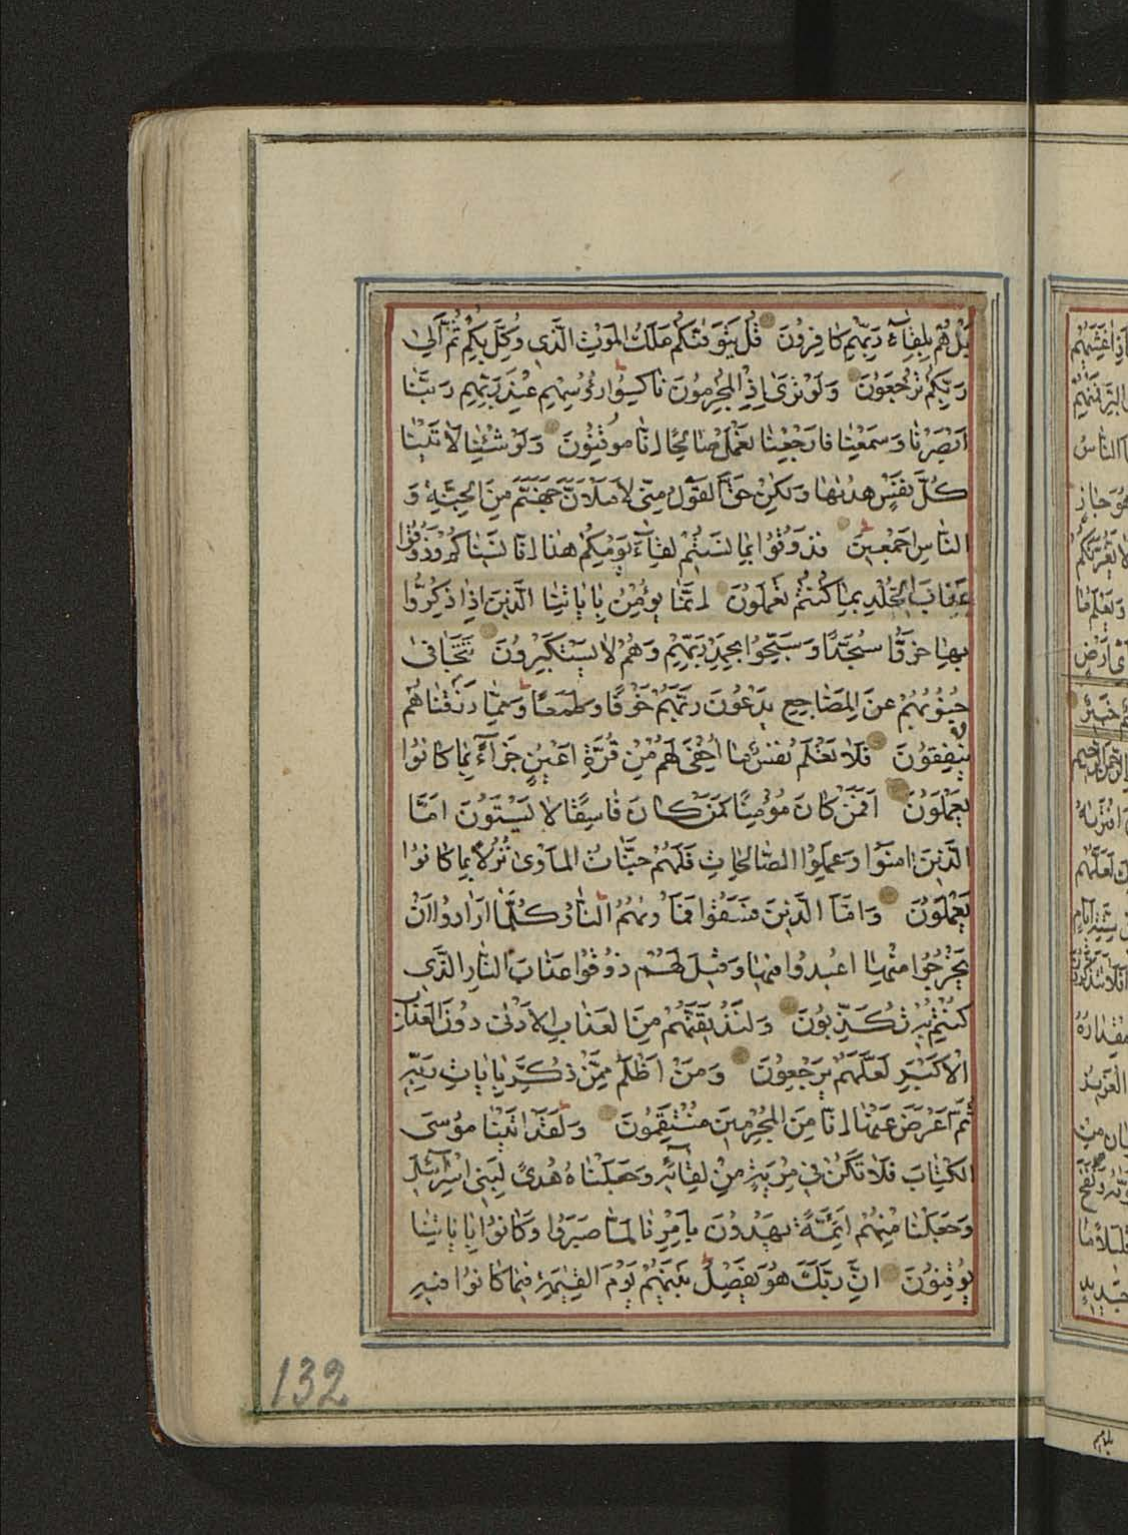 بَلْ هُمْ بِلِقَآءِ رَبِّهِمْ كَافِرُونَ قُلْ يَتَوَفّٰىكُمْ مَلَكُ الْمَوْتِ الَّذِي وُكِّلَ بِكُمْ ثُمَّ اِلٰى
رَبِّكُمْ تُرْجَعُونَ وَلَوْ تَرٰىٓ اِذِ الْمُجْرِمُونَ نَاكِسُوا رُؤُسِهِمْ عِنْدَ رَبِّهِمْ رَبَّنَا
اَبْصَرْنَا وَسَمِعْنَا فَارْجِعْنَا نَعْمَلْ صَالِحًا اِنَّا مُوقِنُونَ وَلَوْ شِئْنَا لَاٰتَيْنَا
كُلَّ نَفْسٍ هُدٰيهَا وَلٰكِنْ حَقَّ الْقَوْلُ مِنِّي لَاَمْلَاَنَّ جَهَنَّمَ مِنَ الْجِنَّةِ وَ
النَّاسِ اَجْمَعِينَ فَذُوقُوا بِمَا نَسِيتُمْ لِقَآءَ يَوْمِكُمْ هٰذَا اِنَّا نَسِينَاكُمْ وَذُوقُوا
عَذَابَ الْخُلْدِ بِمَا كُنْتُمْ تَعْمَلُونَ اِنَّمَا يُؤْمِنُ بِاٰيَاتِنَا الَّذِينَ اِذَا ذُكِّرُوا
بِهَا خَرُّوا سُجَّدًا وَسَبَّحُوا بِحَمْدِ رَبِّهِمْ وَهُمْ لَا يَسْتَكْبِرُونَ تَتَجَافٰى
جُنُوبُهُمْ عَنِ الْمَضَاجِعِ يَدْعُونَ رَبَّهُمْ خَوْفًا وَطَمَعًا وَمِمَّا رَزَقْنَاهُمْ
يُنْفِقُونَ فَلَا تَعْلَمُ نَفْسٌ مَا اُخْفِيَ لَهُمْ مِنْ قُرَّةِ اَعْيُنٍ جَزَآءً بِمَا كَانُوا
يَعْمَلُونَ اَفَمَنْ كَانَ مُؤْمِنًا كَمَنْ كَانَ فَاسِقًا لَا يَسْتَوُونَ اَمَّا
الَّذِينَ اٰمَنُوا وَعَمِلُوا الصَّالِحَاتِ فَلَهُمْ جَنَّاتُ الْمَاْوٰى نُزُلًا بِمَا كَانُوا
يَعْمَلُونَ وَاَمَّا الَّذِينَ فَسَقُوا فَمَاْوٰيهُمُ النَّارُ كُلَّمَا اَرَادُوا اَنْ
يَخْرُجُوا مِنْهَا اُعِيدُوا فِيهَا وَقِيلَ لَهُمْ ذُوقُوا عَذَابَ النَّارِ الَّذِي
كُنْتُمْ بِهِ تُكَذِّبُونَ وَلَنُذِيقَنَّهُمْ مِنَ الْعَذَابِ الْاَدْنٰى دُونَ الْعَذَابِ
الْاَكْبَرِ لَعَلَّهُمْ يَرْجِعُونَ وَمَنْ اَظْلَمُ مِمَّنْ ذُكِّرَ بِاٰيَاتِ رَبِّهِ
ثُمَّ اَعْرَضَ عَنْهَا اِنَّا مِنَ الْمُجْرِمِينَ مُنْتَقِمُونَ وَلَقَدْ اٰتَيْنَا مُوسَى
الْكِتَابَ فَلَا تَكُنْ فِي مِرْيَةٍ مِنْ لِقَآئِهِ وَجَعَلْنَاهُ هُدًى لِبَنِي اِسْرَآئِيلَ
وَجَعَلْنَا مِنْهُمْ اَئِمَّةً يَهْدُونَ بِاَمْرِنَا لَمَّا صَبَرُوا وَكَانُوا بِاٰيَاتِنَا
يُوقِنُونَ اِنَّ رَبَّكَ هُوَ يَفْصِلُ بَيْنَهُمْ يَوْمَ الْقِيٰمَةِ فِيمَا كَانُوا فِيهِ
132